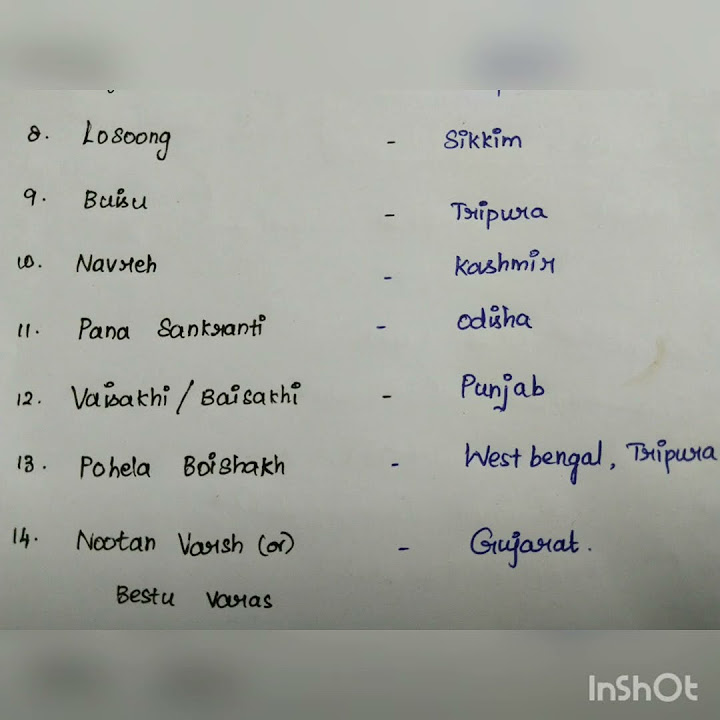 8. Losoong - Sikkim
9. Buisu - Tripura
10. Navreh - Kashmir
11. Pana Sankranti - Odisha
12. Vaisakhi / Baisakhi - Punjab
13. Pohela Boishakh - West bengal, Tripura
14. Nootan Varsh (or) - Gujarat.
Bestu Varas
InShOt